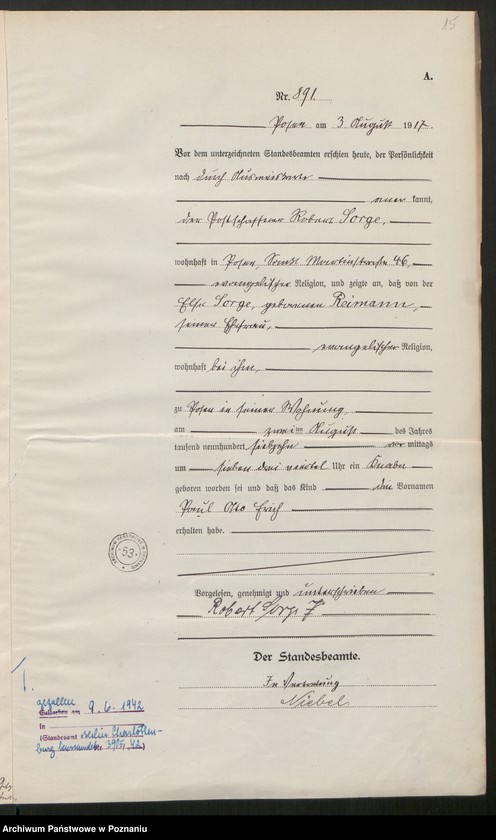 15
A.
Nr. 891.
Posen am 3 August 1917.
Vor dem unterzeichneten Standesbeamten erschien heute, der Persönlichkeit
nach durch Ausweiskarte
aner kannt,
der Postschaffner Robert Sorge,
wohnhaft in Posen, Sankt Martinstraße 46,
evangelischer Religion, und zeigte an, daß von der
Else Sorge, geborenen Reimann,
seiner Ehefrau,
evangelischer Religion,
wohnhaft bei ihm,
zu Posen in seiner Wohnung
am zwei ten August des Jahres
tausend neunhundert siebzehn vor mittags
um sieben drei viertel Uhr ein Knabe
geboren worden sei und daß das Kind den Vornamen
Paul Otto Erich
erhalten habe.
53.
Vorgelesen, genehmigt und unterschrieben
Robert Sorge
Der Standesbeamte.
In Vertretung
Niebel.
1.
gefallen
Gestorben am 9.6.1942
in
(Standesamt Berlin Charlotten-
burg 3955/42)
Archiwum Państwowe w Poznaniu